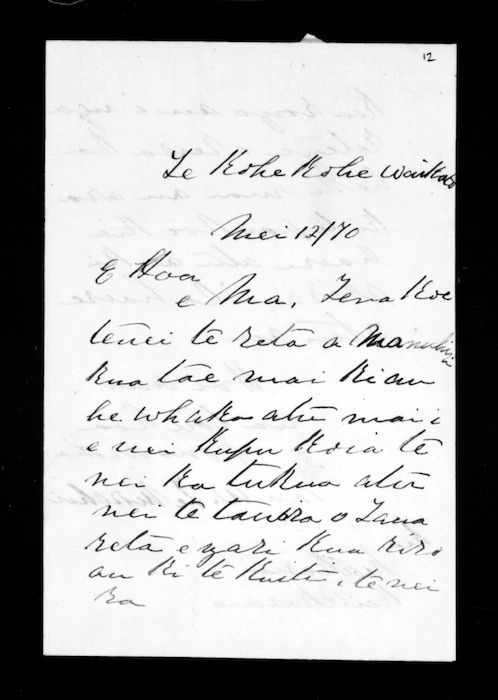 12
Te Kohe Kohe Waikato
Mei 12/70
E Hoa
e Ma, Tena Koe
tenei te reta a Manuhiri
a
kua tae mai ki au
he whaka atu mai i
e nei kupu koia te
nei ka tukua atu
nei te tauira o Taua
reta e ngari kua riro
au ki te Kuiti i te nei
ra